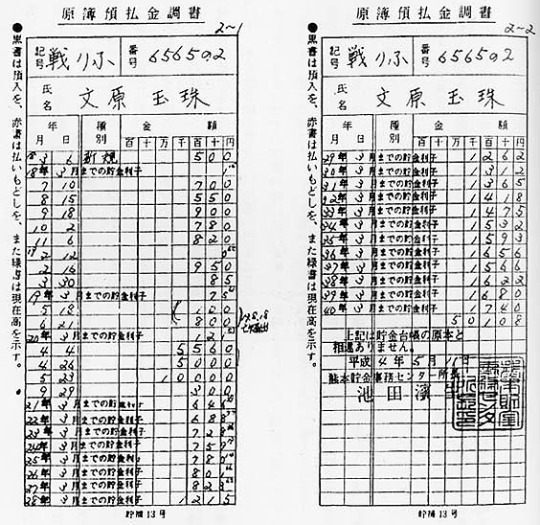 原簿預払金調書
2~1
記号 戦りふ 番号 656502
氏名 文原玉珠
年月日 種別 金額
百十万千百十円
18 3 6 新規 500
18年 3月までの貯金利子
7 10 700
8 15 550
9 18 900
10 2 780
11 6 820
2 12
2 16 950
3 30
19年 3月までの貯金利子 75
5 18
6 21 800
20年 3月までの貯金利子
4 4 5560
4 26 5000
5 23 10000
9 29 300
21年 3月までの貯金利子
22年 3月までの貯金利子 688
23年 3月までの貯金利子 728
24年 3月までの貯金利子 757
25年 3月までの貯金利子 780
26年 3月までの貯金利子 801
27年 3月までの貯金利子 823
28年 3月までの貯金利子 1215
貯補13号
●黒書は預入を、赤書は払いもどしを、また緑書は現在高を示す。
原簿預払金調書
2~2
記号 戦りふ 番号 656502
氏名 文原玉珠
年月日 種別 金額
百十万千百十円
29年 3月までの貯金利子 1262
30年 3月までの貯金利子 1312
31年 3月までの貯金利子 1365
32年 3月までの貯金利子 1418
33年 3月までの貯金利子 1475
34年 3月までの貯金利子 1532
35年 3月までの貯金利子 1593
36年 3月までの貯金利子 1656
37年 3月までの貯金利子 1566
38年 3月までの貯金利子 1622
39年 3月までの貯金利子 1680
40年 3月までの貯金利子 1740
50108
上記は貯金台帳の原本と
相違ありません。
平成4年5月11日
熊本貯金事務センター所長
池田
貯補13号
●黒書は預入を、赤書は払いもどしを、また緑書は現在高を示す。